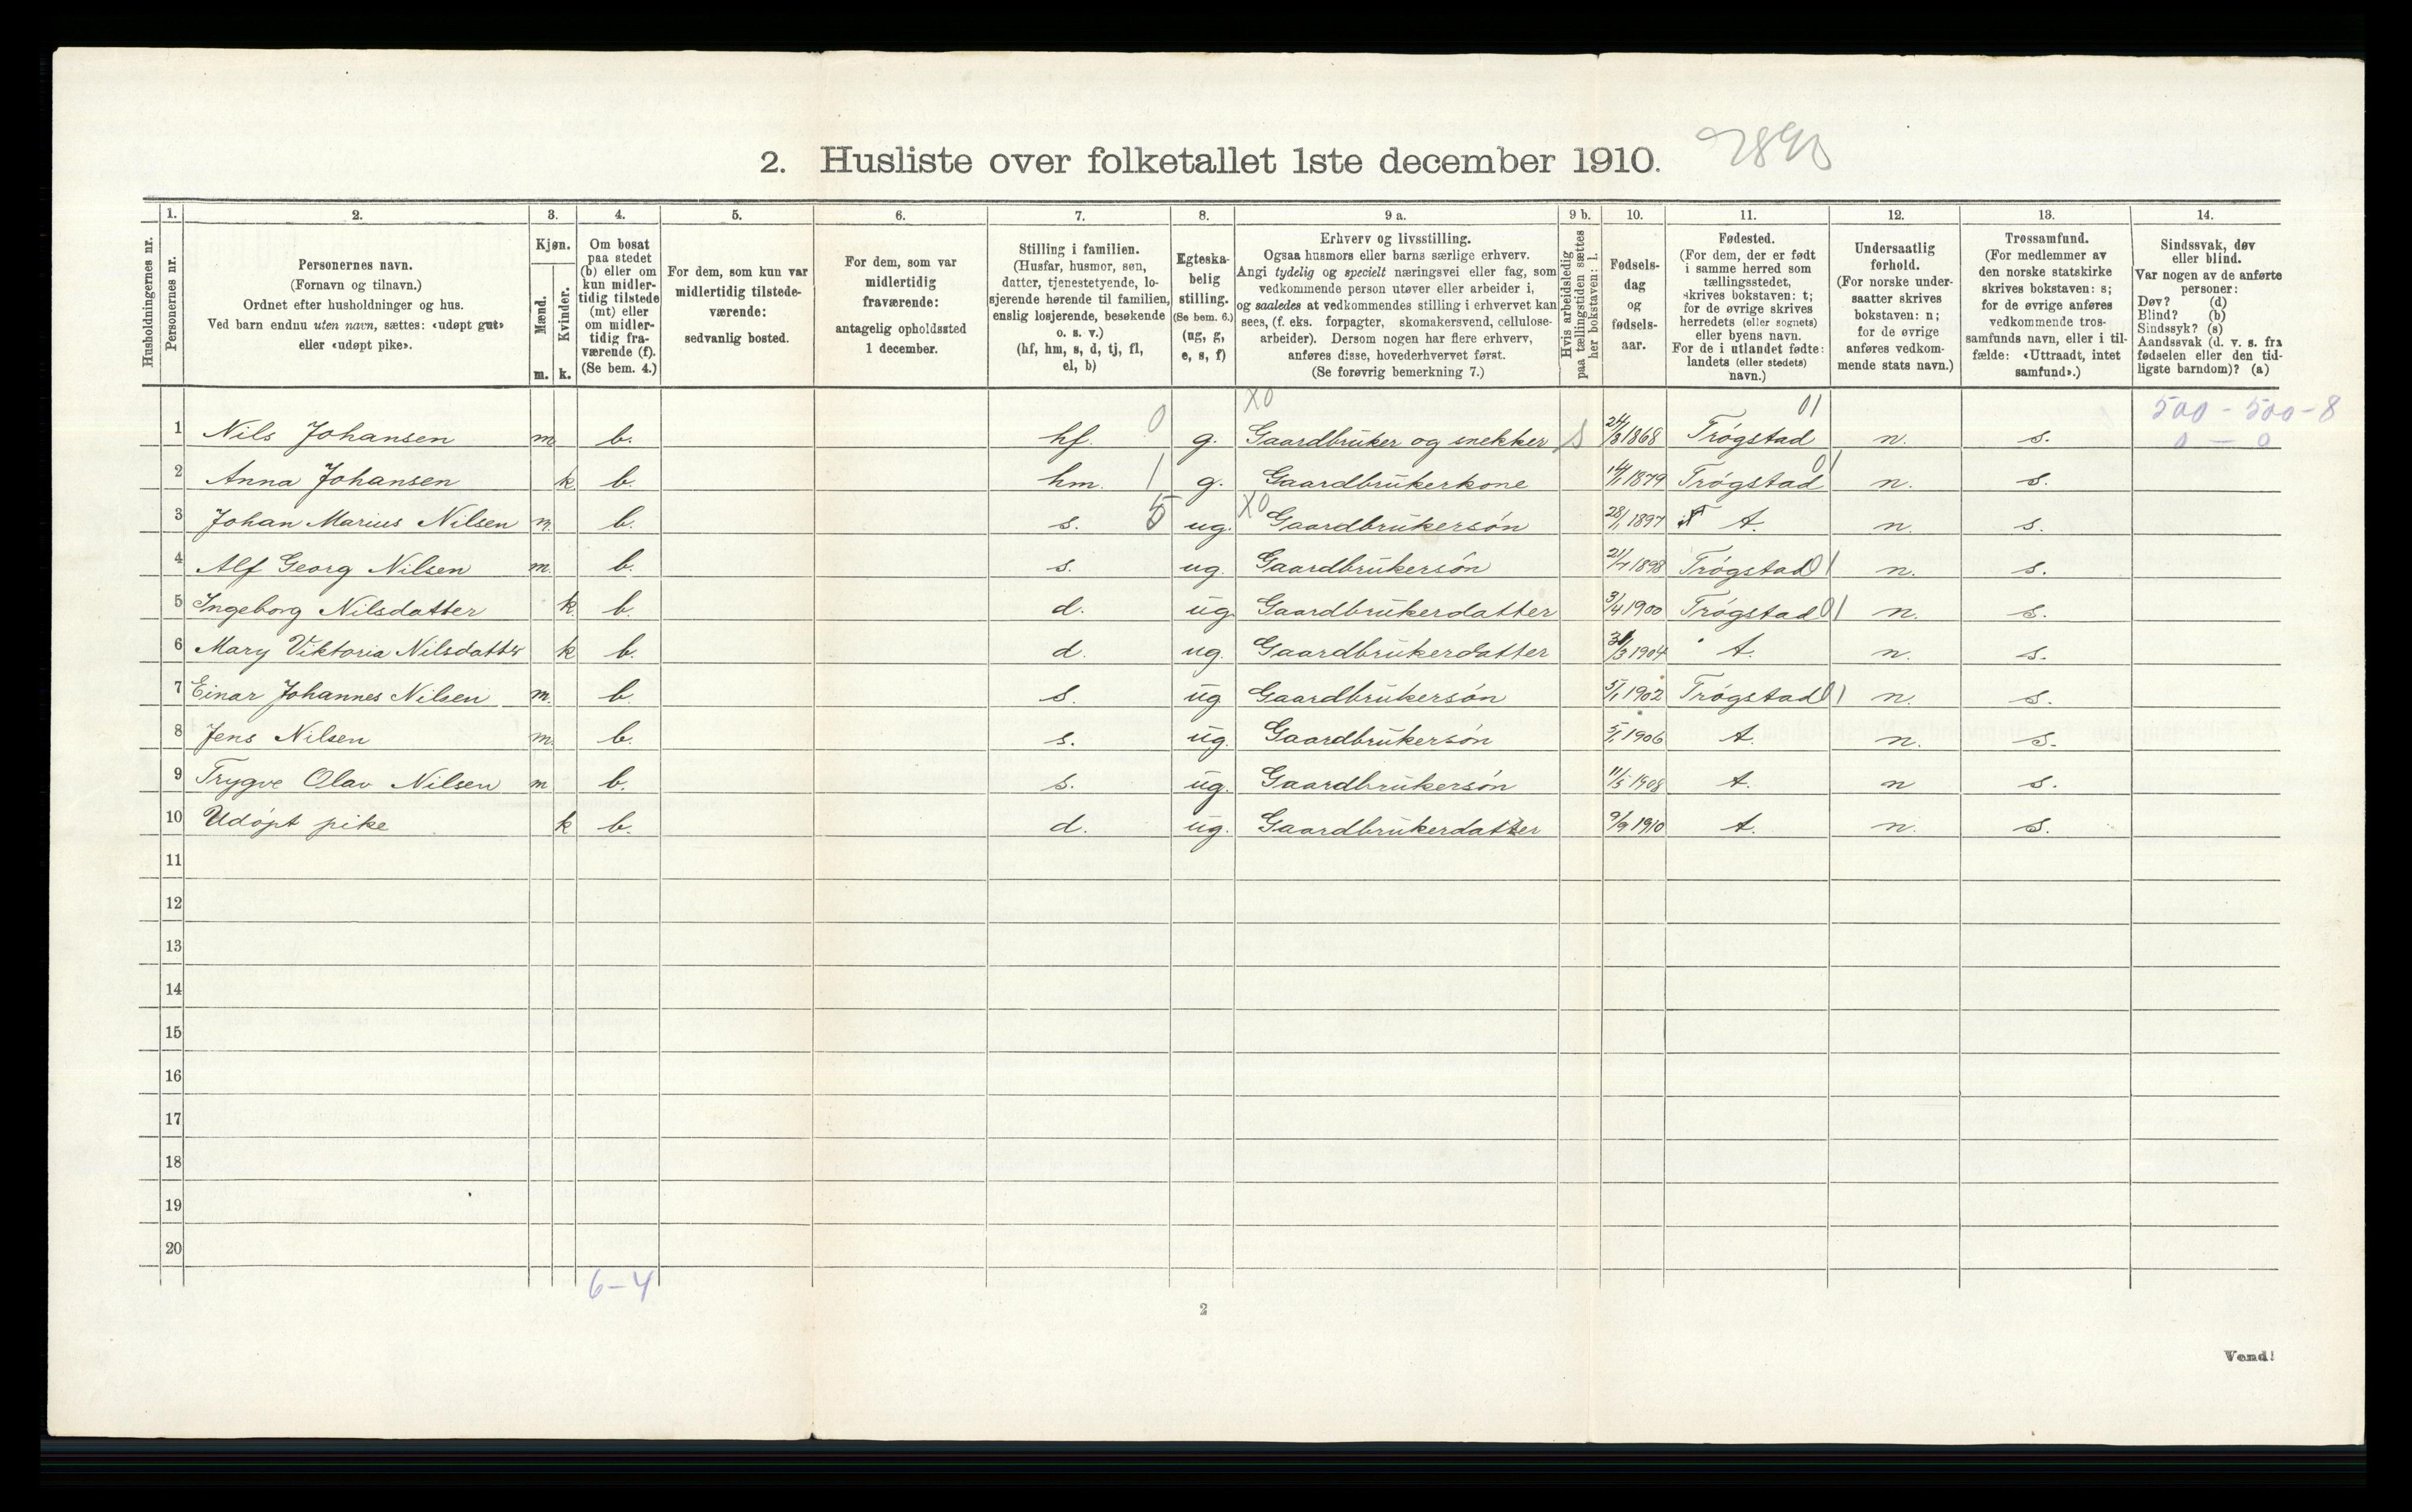 2. Husliste over folketallet 1ste december 1910. 2890
1. 2. 3. 4. 5. 6. 7. 8. 9 a. 9 b. 10. 11. 12. 13. 14.
Husholdningernes nr.
Personernes nr.
Personernes navn.
(Fornavn og tilnavn.)
Ordnet efter husholdninger og hus.
Ved barn endnu uten navn, sættes: «udøpt gut»
eller «udøpt pike».
Kjøn.
Mænd.
Kvinder.
m. k.
Om bosat
paa stedet
(b) eller om
kun midler-
tidig tilstede
(mt) eller
om midler-
tidig fra-
værende (f).
(Se bem. 4.)
For dem, som kun var
midlertidig tilstede-
værende:
sedvanlig bosted.
For dem, som var
midlertidig
fraværende:
antagelig opholdssted
1 december.
Stilling i familien.
(Husfar, husmor, søn,
datter, tjenestetyende, lo-
sjerende hørende til familien,
enslig losjerende, besøkende
o. s. v.)
(hf, hm, s, d, tj, fl,
el, b)
Egteska-
belig
stilling.
(Se bem. 6.)
(ug, g,
e, s, f)
Erhverv og livsstilling.
Ogsaa husmors eller barns særlige erhverv.
Angi tydelig og specielt næringsvei eller fag, som
vedkommende person utøver eller arbeider i,
og saaledes at vedkommendes stilling i erhvervet kan
sees, (f. eks. forpagter, skomakersvend, cellulose-
arbeider). Dersom nogen har flere erhverv,
anføres disse, hovederhvervet først.
(Se forøvrig bemerkning 7.)
Hvis arbeidsledig
paa tællingstiden sættes
her bokstaven: l.
Fødsels-
dag
og
fødsels-
aar.
Fødested.
(For dem, der er født
i samme herred som
tællingsstedet,
skrives bokstaven: t;
for de øvrige skrives
herredets (eller sognets)
eller byens navn.
For de i utlandet fødte:
landets (eller stedets)
navn.)
Undersaatlig
forhold.
(For norske under-
saatter skrives
bokstaven: n;
for de øvrige
anføres vedkom-
mende stats navn.)
Trossamfund.
(For medlemmer av
den norske statskirke
skrives bokstaven: s;
for de øvrige anføres
vedkommende tros-
samfunds navn, eller i til-
fælde: «Uttraadt, intet
samfund».)
Sindssvak, døv
eller blind.
Var nogen av de anførte
personer:
Døv? (d)
Blind? (b)
Sindssyk? (s)
Aandssvak (d. v. s. fra
fødselen eller den tid-
ligste barndom)? (a)
X0 01 500 - 500 - 8
1 Nils Johansen m b. hf. 0 g. Gaardbruker og snekker s 24/3 1868 Trøgstad n. s. 0 - 0
2 Anna Johansen k b. hm. 1 g. Gaardbrukerkone 14/1 1879 Trøgstad 01 n. s.
3 Johan Marius Nilsen m. b. s. 5 ug. X0 Gaardbrukersøn 28/1 1897 t. n. s.
4 Alf Georg Nilsen m. b. s. ug. Gaardbrukersøn 21/7 1898 Trøgstad 01 n. s.
5 Ingeborg Nilsdatter k. b. d. ug. Gaardbrukerdatter 3/4 1900 Trøgstad 01 n. s.
6 Mary Viktoria Nilsdatter k b. d. ug. Gaardbrukerdatter 31/3 1904 t. n. s.
7 Einar Johannes Nilsen m. b. s. ug Gaardbrukersøn 5/1 1902 Trøgstad 01 n. s.
8 Jens Nilsen m. b. s. ug. Gaardbrukersøn 5/1 1906 t. n. s.
9 Trygve Olav Nilsen m b. s. ug. Gaardbrukersøn 11/5 1908 t. n s.
10 Udøpt pike k b. d. ug. Gaardbrukerdatter 9/9 1910 t. n. s.
11
12
13
14
15
16
17
18
19
20
6-4
2
Vend!